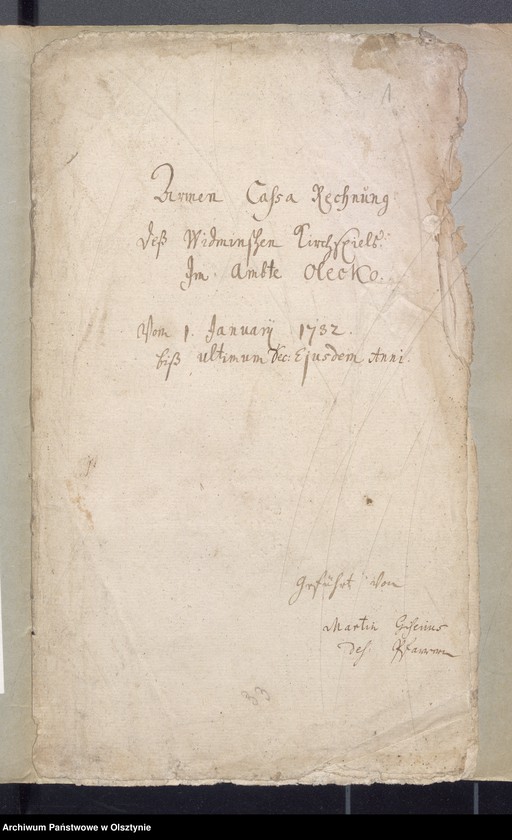 1
Armen Cassa Rechnung
deß Widminschen Kirchspiels.
Im Ambte Olecko.
Vom 1. Januarij 1732.
biß ultimum Dec: Ejusdem Anni.
geführt von
Martin Giseius
des. Pfarrern
33
Archiwum Państwowe w Olsztynie